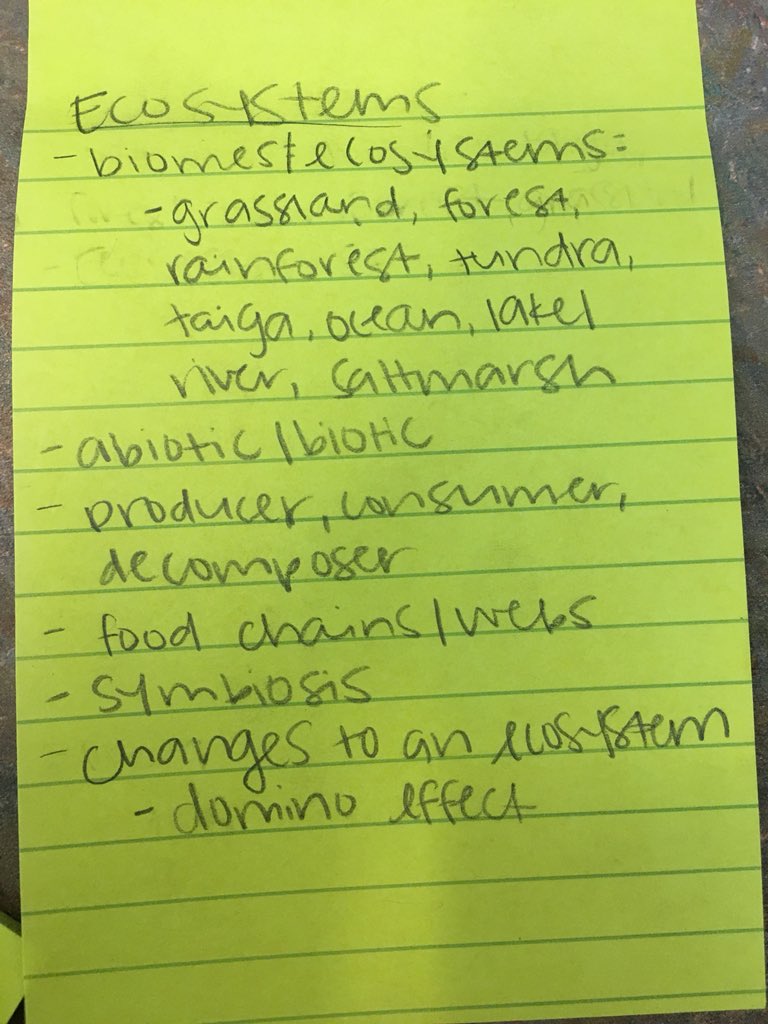 Ecosystems
- biomes & ecosystems:
- grassland, forest,
rainforest, tundra,
taiga, ocean, lake/
river, saltmarsh
- abiotic/biotic
- producer, consumer,
decomposer
- food chains/webs
- symbiosis
- changes to an ecosystem
- domino effect